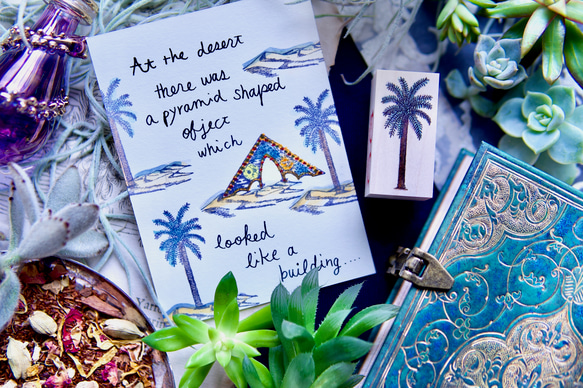 At the desert
there was
a pyramid shaped
ofject
which
looked
like a
building....